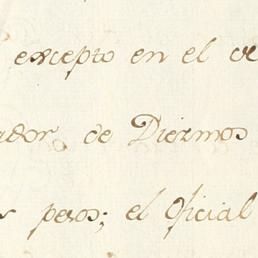 excepto en el
ador de Diezmos
s pesos; el Oficial